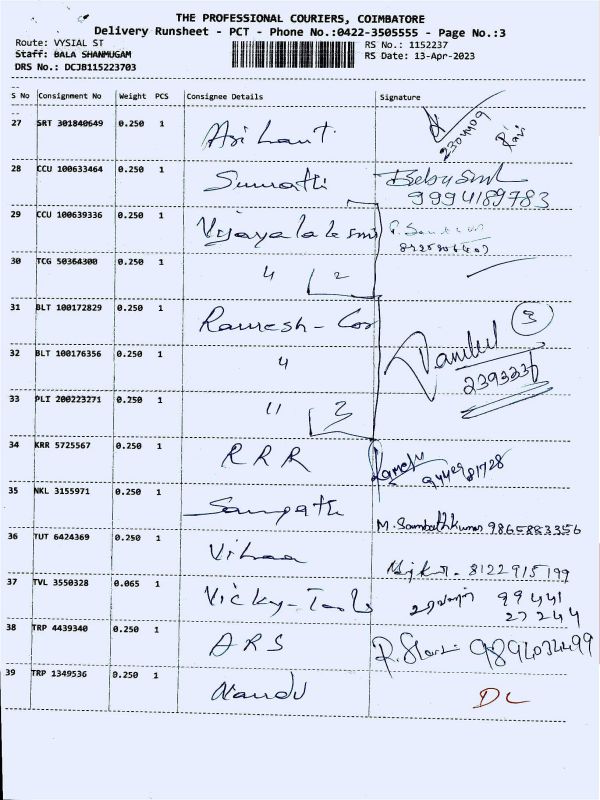 THE PROFESSIONAL COURIERS, COIMBATORE
Delivery Runsheet - PCT - Phone No.:0422-3505555 - Page No.:3
Route: VYSIAL ST RS No.: 1152237
Staff: BALA SHANMUGAM RS Date: 13-Apr-2023
DRS No.: DCJB115223703
S No Consignment No Weight PCS Consignee Details Signature
27 SRT 301840649 0.250 1 Arihant 2304409
28 CCU 100633464 0.250 1 Sumathi
9994189783
29 CCU 100639336 0.250 1 Vijayalakshmi
30 TCG 50364300 0.250 1 " 2
31 BLT 100172829 0.250 1 Ramesh - 3
32 BLT 100176356 0.250 1 "
2393336
33 PLI 200223271 0.250 1 " 3
34 KRR 5725567 0.250 1 RRR Ramesh
35 NKL 3155971 0.250 1 Sampath M. Sambathkumar 9865883356
36 TUT 6424369 0.250 1 Vihaa 8122915199
37 TVL 3550328 0.065 1 Vicky - Tools 99441
27244
38 TRP 4439340 0.250 1 ARS
39 TRP 1349536 0.250 1 Nandu DL